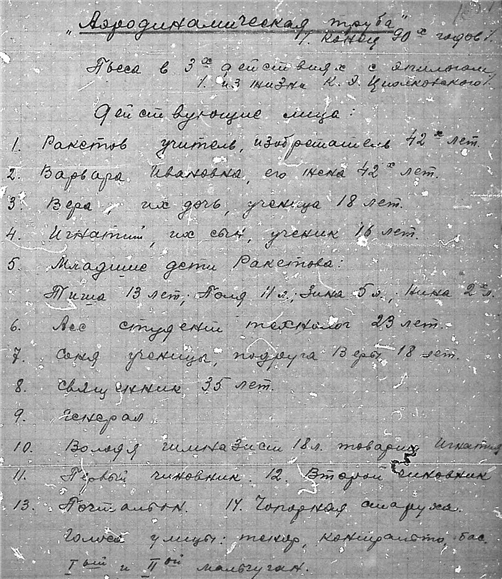 "Аэродинамическая труба"
/. Конец 90х годов/.
Пьеса в 3х действиях с эпилогом
/. из жизни К. Э. Циолковского/.
Действующие лица:
1. Ракетов учитель, изобретатель 42х лет.
2. Варвара Ивановна, его жена 42х лет.
3. Вера, их дочь, ученица 18 лет.
4. Игнатий, их сын, ученик 16 лет.
5. Младшие дети Ракетова:
Тиша 13 лет, Поля 11 л., Зина 5 л., Нина 2х л.
6. Асс студент технолог 23 лет.
7. Соня ученицы, подруга Веры 18 лет.
8. Священник 35 лет.
9. Генерал
10. Володя гимназист 18 л. товарищ Игнатия
11. Первый чиновник. 12. Второй чиновник
13. Почтальон. 14. Чопорная старуха.
Голоса улицы: тенор, контральто, бас.
Iый и IIой мальчуган.